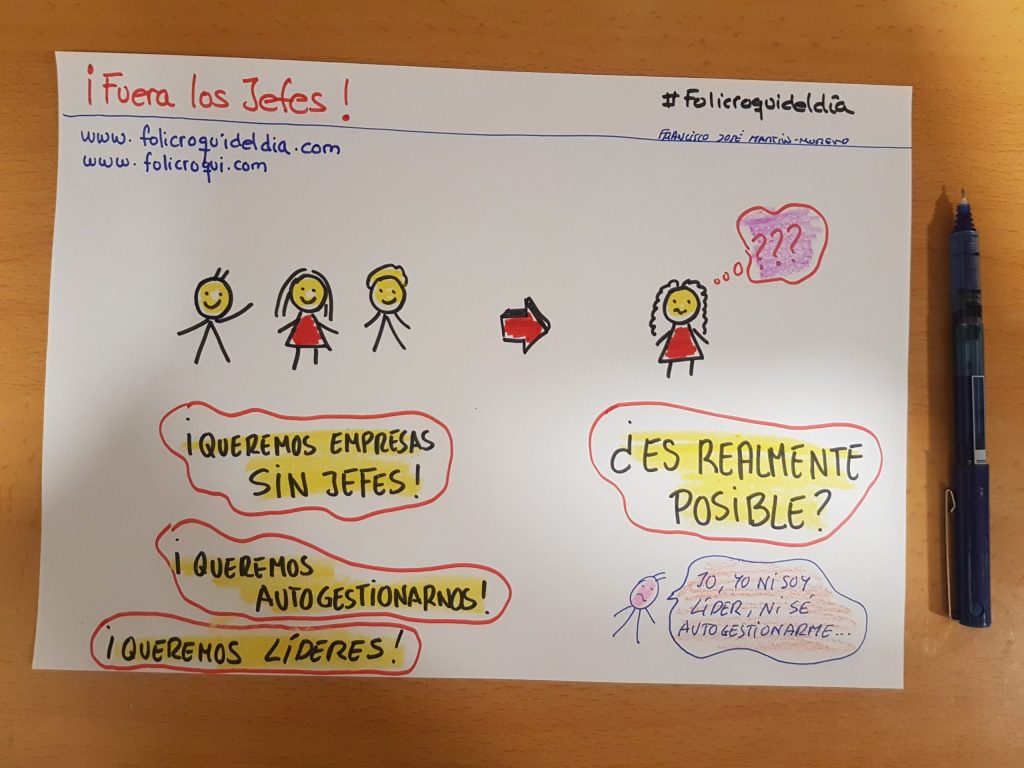 ¡Fuera los Jefes!
#Folicroquideldía
www.folicroquideldia.com
FRANCISCO JOSÉ MARTÍN-MORENO
www.folicroqui.com
???
¡QUEREMOS EMPRESAS
SIN JEFES!
¿ES REALMENTE
POSIBLE?
¡QUEREMOS
AUTOGESTIONARNOS!
¡QUEREMOS LÍDERES!
JO, YO NI SOY
LÍDER, NI SÉ
AUTOGESTIONARME...